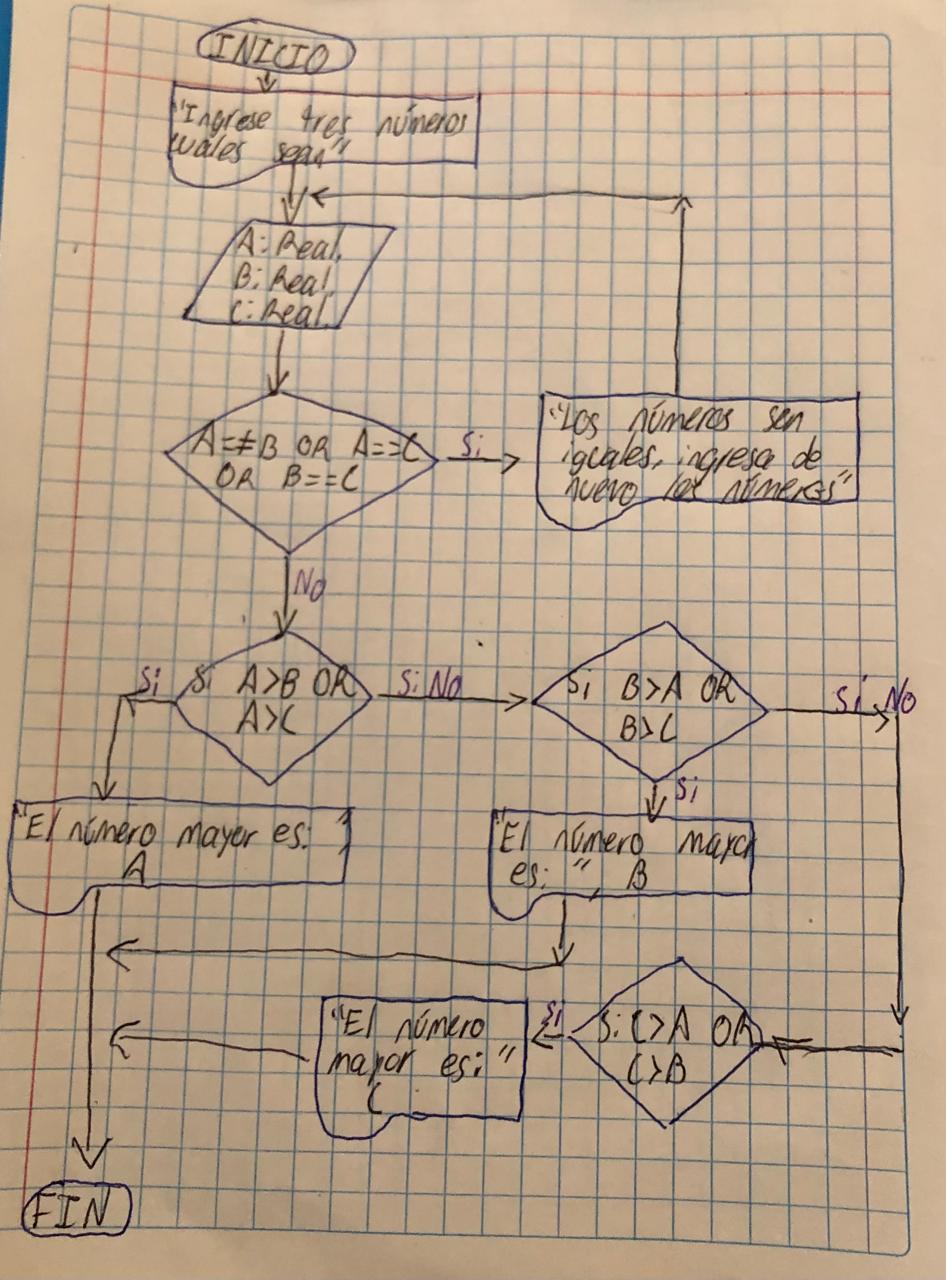 INICIO
"Ingrese tres números
cuales sean"
A: Real.
B: Real.
C: Real.
A==B OR A==C
OR B==C
Si
"Los números son
iguales, ingresa de
nuevo los números"
No
Si
Si A>B OR
A>C
Si No
Si B>A OR
B>C
Si No
Si
"El número mayor es: "
A
"El número mayor
es: ", B
"El número
mayor es: "
C
Si
Si C>A OR
C>B
FIN